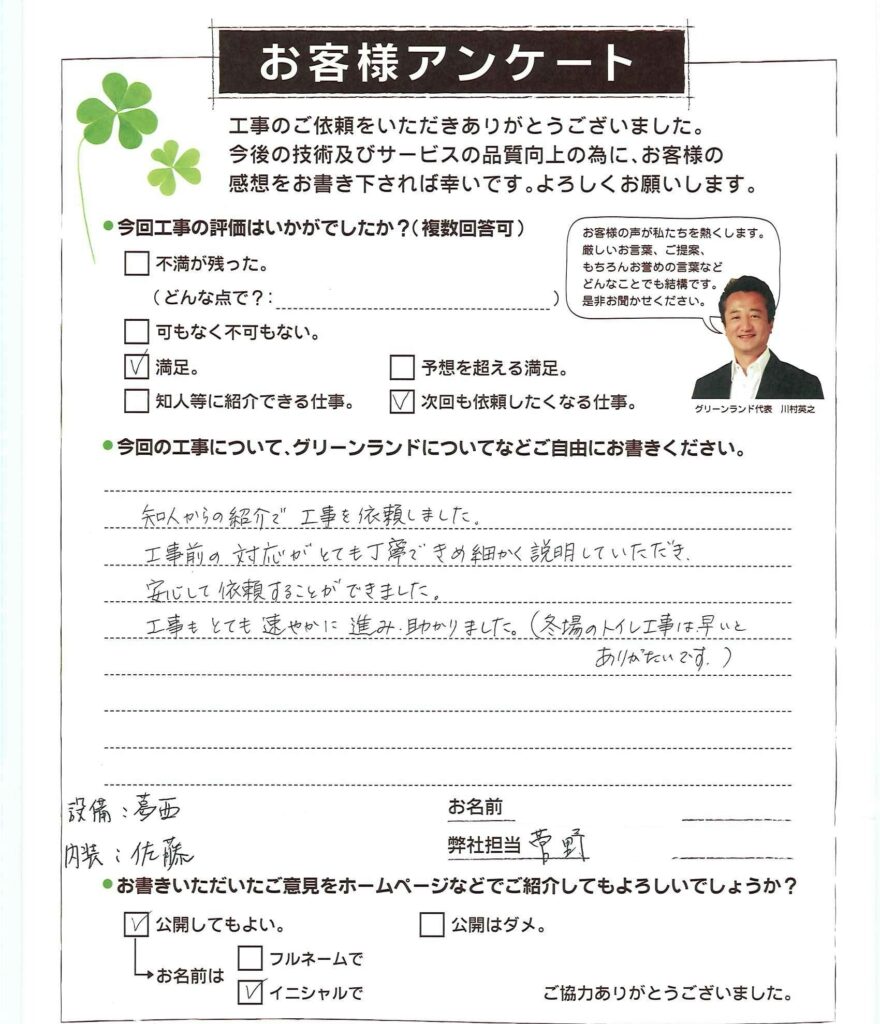 お客様アンケート
工事のご依頼をいただきありがとうございました。
今後の技術及びサービスの品質向上の為に、お客様の
感想をお書き下されば幸いです。よろしくお願いします。
●今回工事の評価はいかがでしたか?(複数回答可)
不満が残った。
(どんな点で?: )
可もなく不可もない。
満足。
予想を超える満足。
知人等に紹介できる仕事。
次回も依頼したくなる仕事。
お客様の声が私たちを熱くします。
厳しいお言葉、ご提案、
もちろんお誉めの言葉など
どんなことでも結構です。
是非お聞かせください。
グリーンランド代表 川村英之
●今回の工事について、グリーンランドについてなどご自由にお書きください。
知人からの紹介で 工事を依頼しました。
工事前の対応がとても丁寧できめ細かく説明していただき、
安心して依頼することができました。
工事もとても速やかに進み、助かりました。(冬場のトイレ工事は早いと
ありがたいです。)
設備:葛西
内装:佐藤
お名前
弊社担当 菅野
●お書きいただいたご意見をホームページなどでご紹介してもよろしいでしょうか?
公開してもよい。
公開はダメ。
お名前は
フルネームで
イニシャルで
ご協力ありがとうございました。